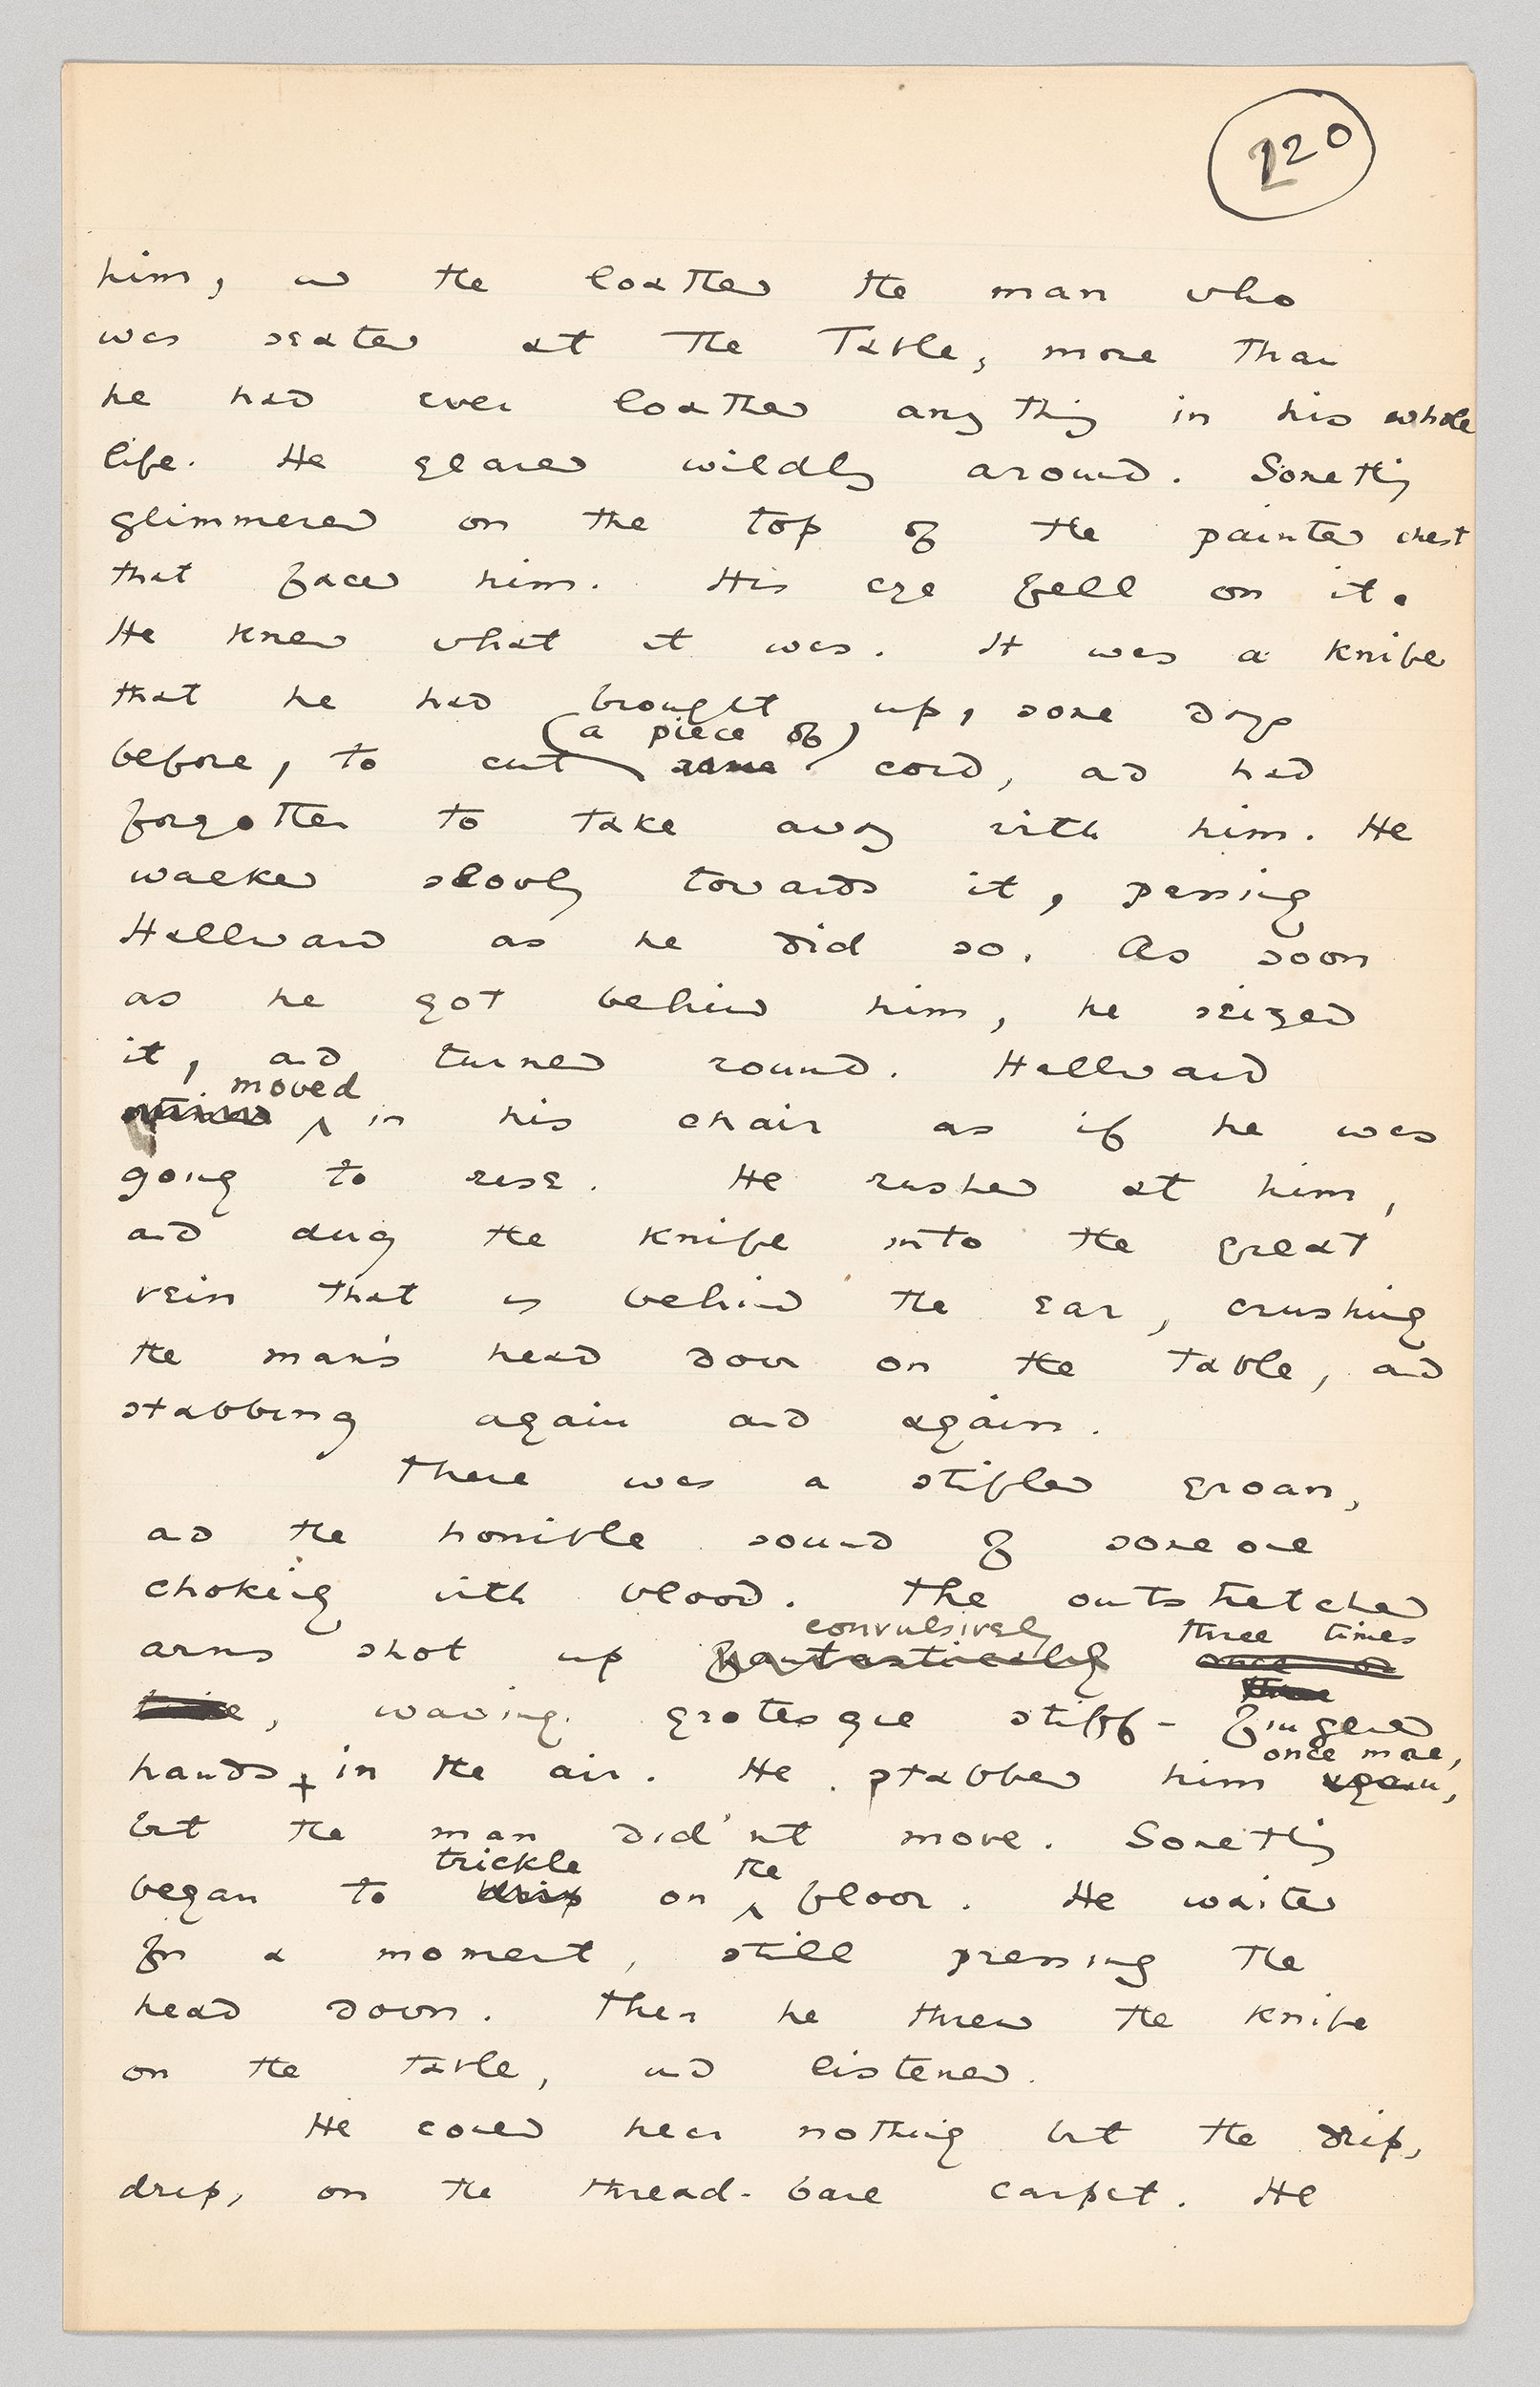 220
him, and he loathed the man who
was seated at the Table, more than
he had ever loathed anything in his whole
life. He glared wildly around. Something
glimmered on the top of the painted chest
that faced him. His eye fell on it.
He knew what it was. It was a knife
that he had brought up, some days
(a piece of)
before, to cut some cord, and had
forgotten to take away with him. He
walked slowly towards it, passing
Hallward as he did so. As soon
as he got behind him, he seized
it, and turned round. Hallward
moved
in his chair as if he was
going to rise. He rushed at him,
and dug the knife into the great
vein that is behind the ear, crushing
the man's head down on the table, and
stabbing again and again.
There was a stifled groan,
and the horrible sound of some one
choking with blood. The outstretched
convulsively three times
arms shot up fantastically once or
twice, waving grotesque stiff-fingered
once more,
hands in the air. He stabbed him again,
but the man did'nt move. Something
trickle the
began to drip on floor. He waited
for a moment, still pressing the
head down. Then he threw the knife
on the table, and listened.
He could hear nothing but the drip,
drip, on the thread-bare carpet. He